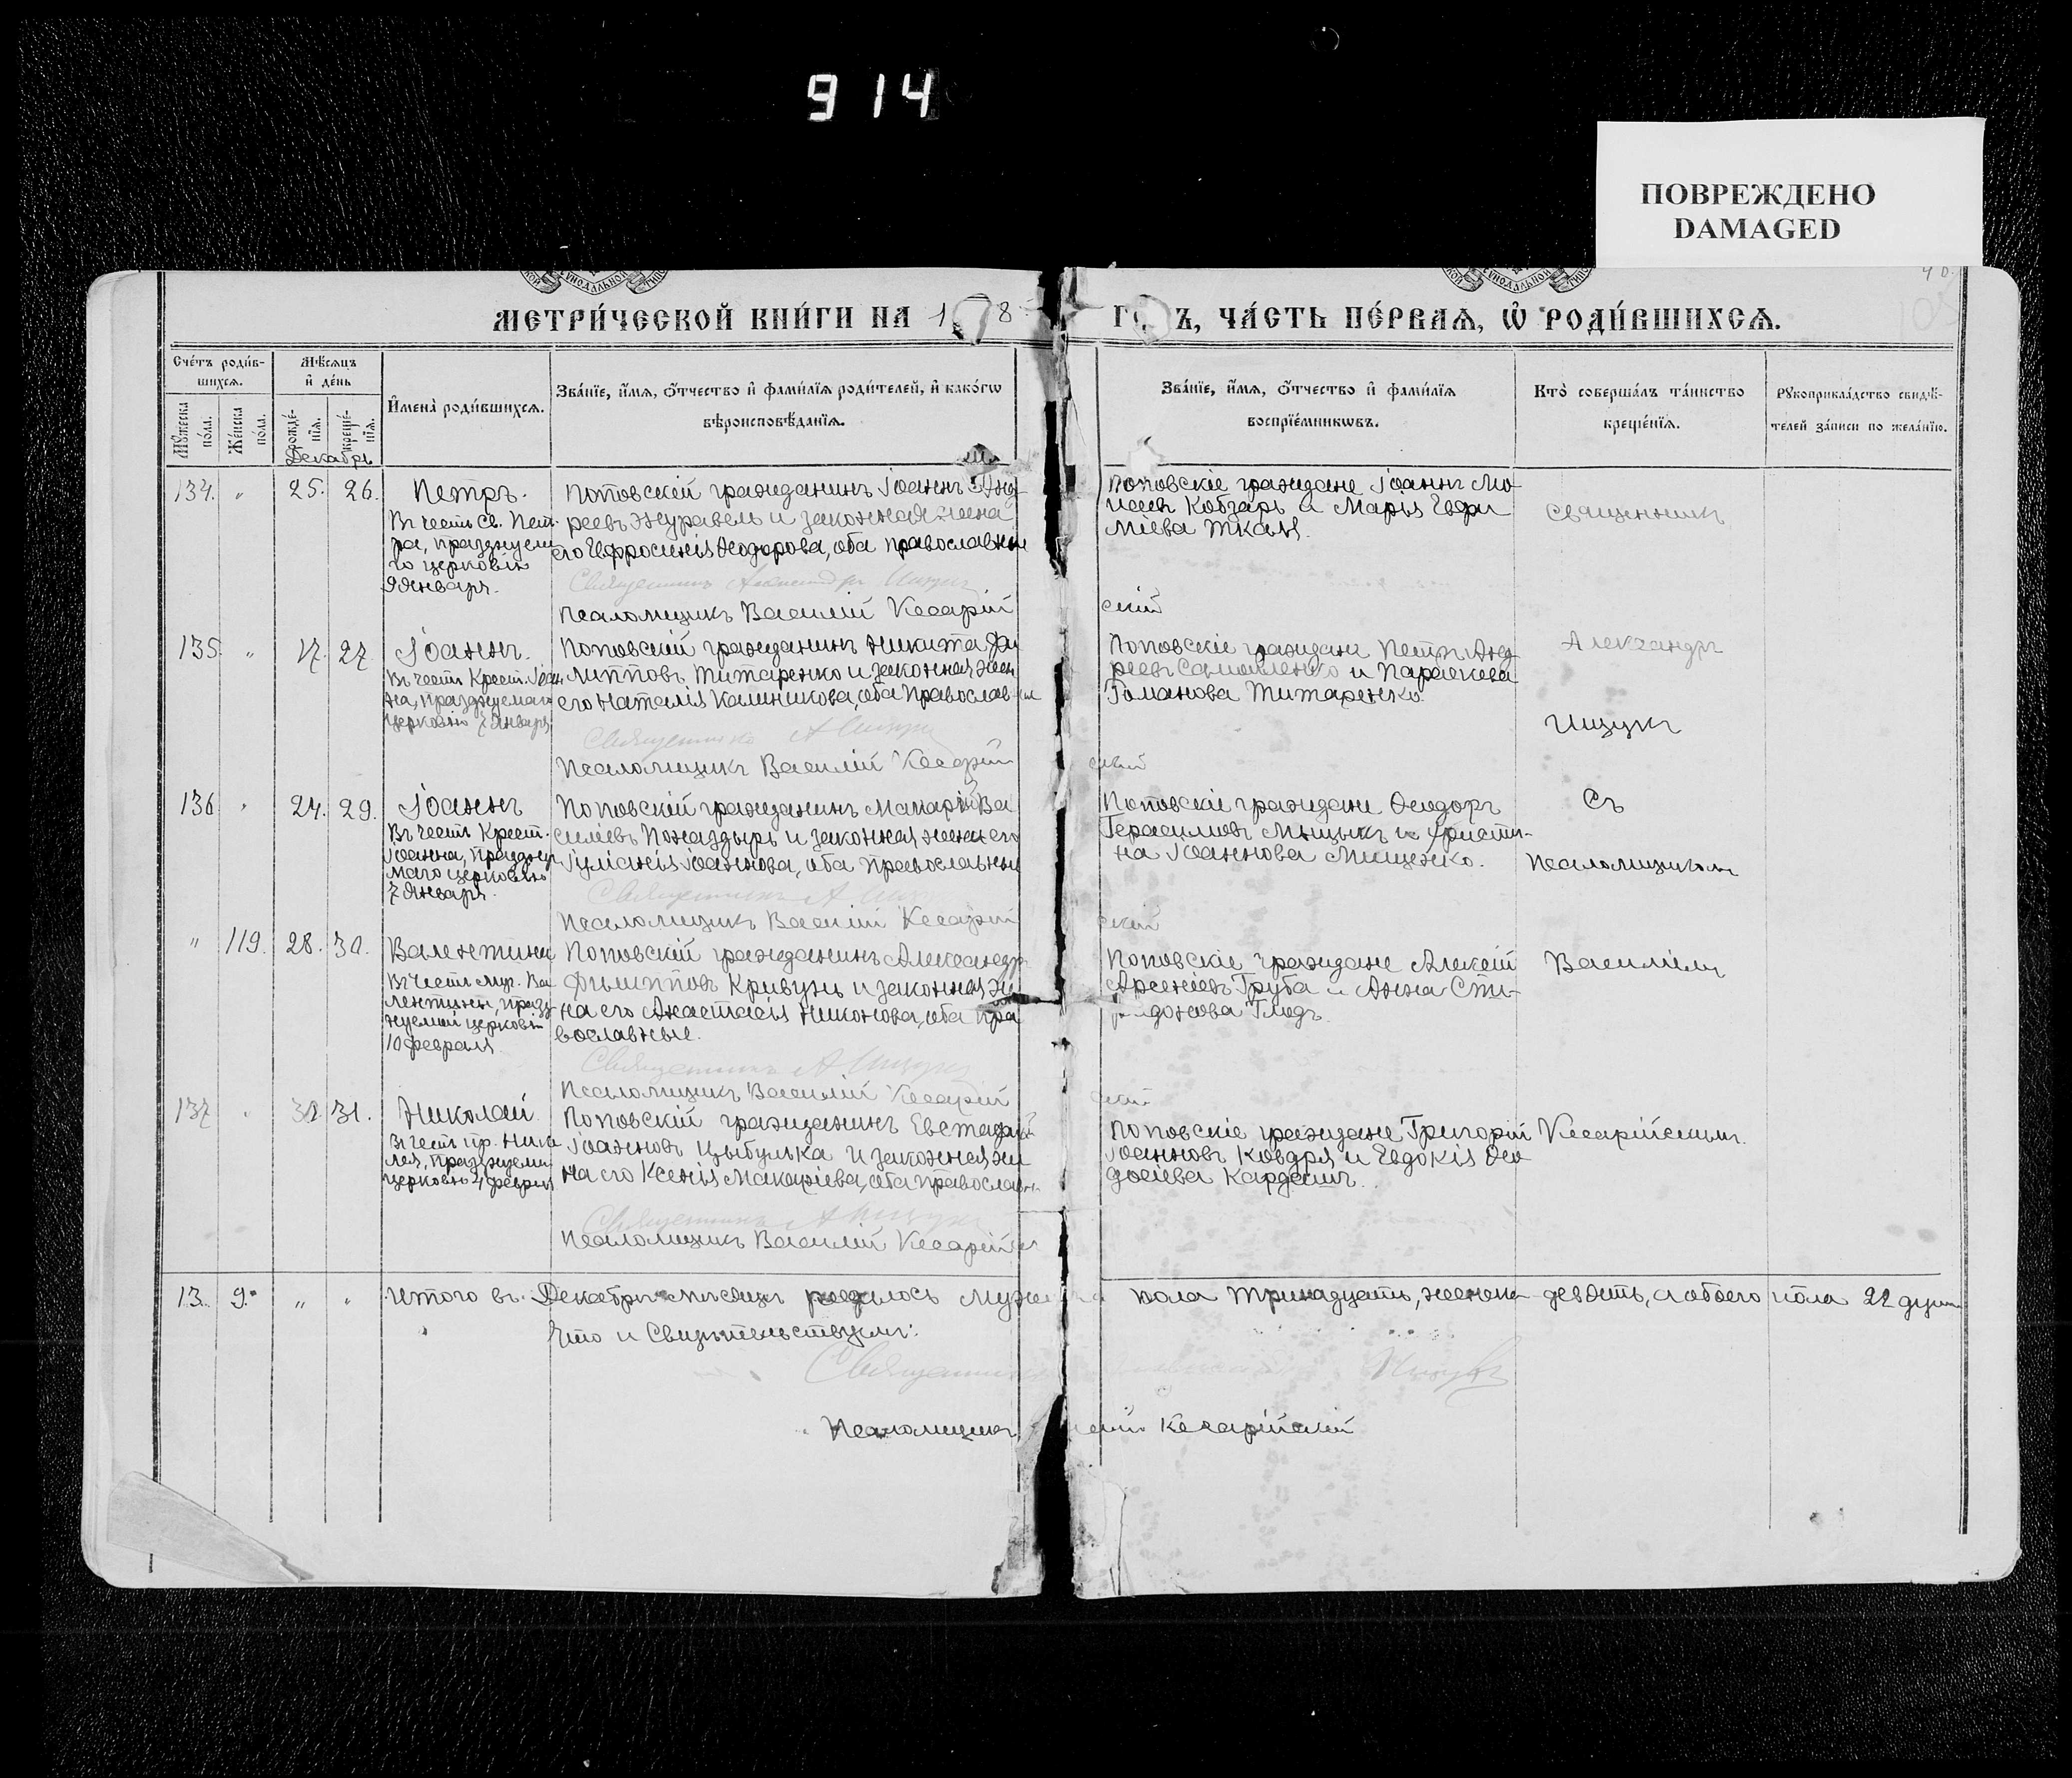 914
ПОВРЕЖДЕНО
DAMAGED
МЕТРИ́ЧЕСКОЙ КНИ́ГИ НА 1 8 Г Ъ, ЧА́СТЬ ПЕ́РВАѦ, Ѡ҆ РОДИ́ВШИХСѦ.
Сче́тъ роди́в-
шихсѧ.
Мѣ́сѧцъ
и҆ де́нь
И҆мена̀ роди́вшихсѧ.
Зва́нїе, и҆́мѧ, ѻ҆́тчество и҆ фами́лїѧ роди́телей, и҆ како́гѡ
вѣроисповѣ́данїѧ.
Зва́нїе, и҆́мѧ, ѻ҆́тчество и҆ фами́лїѧ
воспрїе́мникѡвъ.
Кто̀ соверша́лъ та́инство
креще́нїѧ.
Рꙋкоприкла́дство свидѣ́-
телей за́писи по жела́нїю.
Мꙋ́жеска по́ла.
Же́нска по́ла.
рожде́-нїѧ.
креще́-нїѧ.
Декабрь
134. " 25. 26. Петръ.
Въ честь Св. Пет-
ра, празднуема
го церковію
9 Января.
Поповскій гражданинъ Іоаннъ Анд-
реевъ Журавель и законная жена
его Ефросинія Ѳеодорова, оба православные
Священникъ Александръ Ищукъ
Псаломщикъ Василій Кесарій
скій
Поповскіе граждане Іоаннъ Мо-
исеевъ Кобзарь и Марья Евфи
міева Ткаля.
Священникъ
135 " 17. 27. Іоаннъ.
Въ честь Крест. Іоан
на, празднуемаго
церковію 7 Января
Поповскій гражданинъ Никита Фи
липповъ Титаренко и законная жена
его Наталія Калиникова, оба православные
Священникъ А Ищукъ
Псаломщикъ Василій Кесарій
скій
Поповскіе граждане Петръ Анд-
реевъ Самойленко и Параскева
Романова Титаренко.
Александръ
Ищукъ
136 " 24. 29. Іоаннъ
Въ честь Крест.
Іоанна, праздну
маго церковію
7 Января.
Поповскій гражданинъ Макарій Ва
силіевъ Поназдырь и законная жена его
Іуліанія Іоаннова, оба православные
Священникъ А
Псаломщикъ Василій Кесарій
скій
Поповскіе граждане Ѳеодоръ
Герасимовъ Мицыкъ и Христи-
на Іоаннова Мищенко.
Съ
Псаломщикомъ
" 119. 28. 30. Валентина
Въ честь муч. Ва
лентины, празд
нуемой церковію
10 февраля
Поповскій гражданинъ Александръ
Филипповъ Кривунъ и законная же
на его Анастасія Никонова, оба пра
вославные.
Священникъ А Ищукъ
Псаломщикъ Василій Кесарій
ский
Поповскіе граждане Алексій
Арсеніевъ Груба и Анна Спи-
ридонова Глодъ.
Василіемъ
137 " 31. Николай.
Въ честь пр. Нико
лая, празднуема
церковію 4 февраля
Поповскій гражданинъ Евстафій
Іоанновъ Цыбулька и законная же
на его Ксенія Макаріева, оба православн.
Священникъ А Ищукъ
Псаломщикъ Василій Кесарійск
Поповскіе граждане Григорій
Іоанновъ Ковдря и Евдокія Ѳео
досіева Кардашъ.
Кесарійскимъ.
13. 9. " " Итого въ Декабрѣ мѣсяцѣ родилось муже пола тринадцать, женска девять, а обоего пола 22 души
Что и свидѣтельствуемъ:
Священникъ Ищукъ
Псаломщикъ Кесарійскій